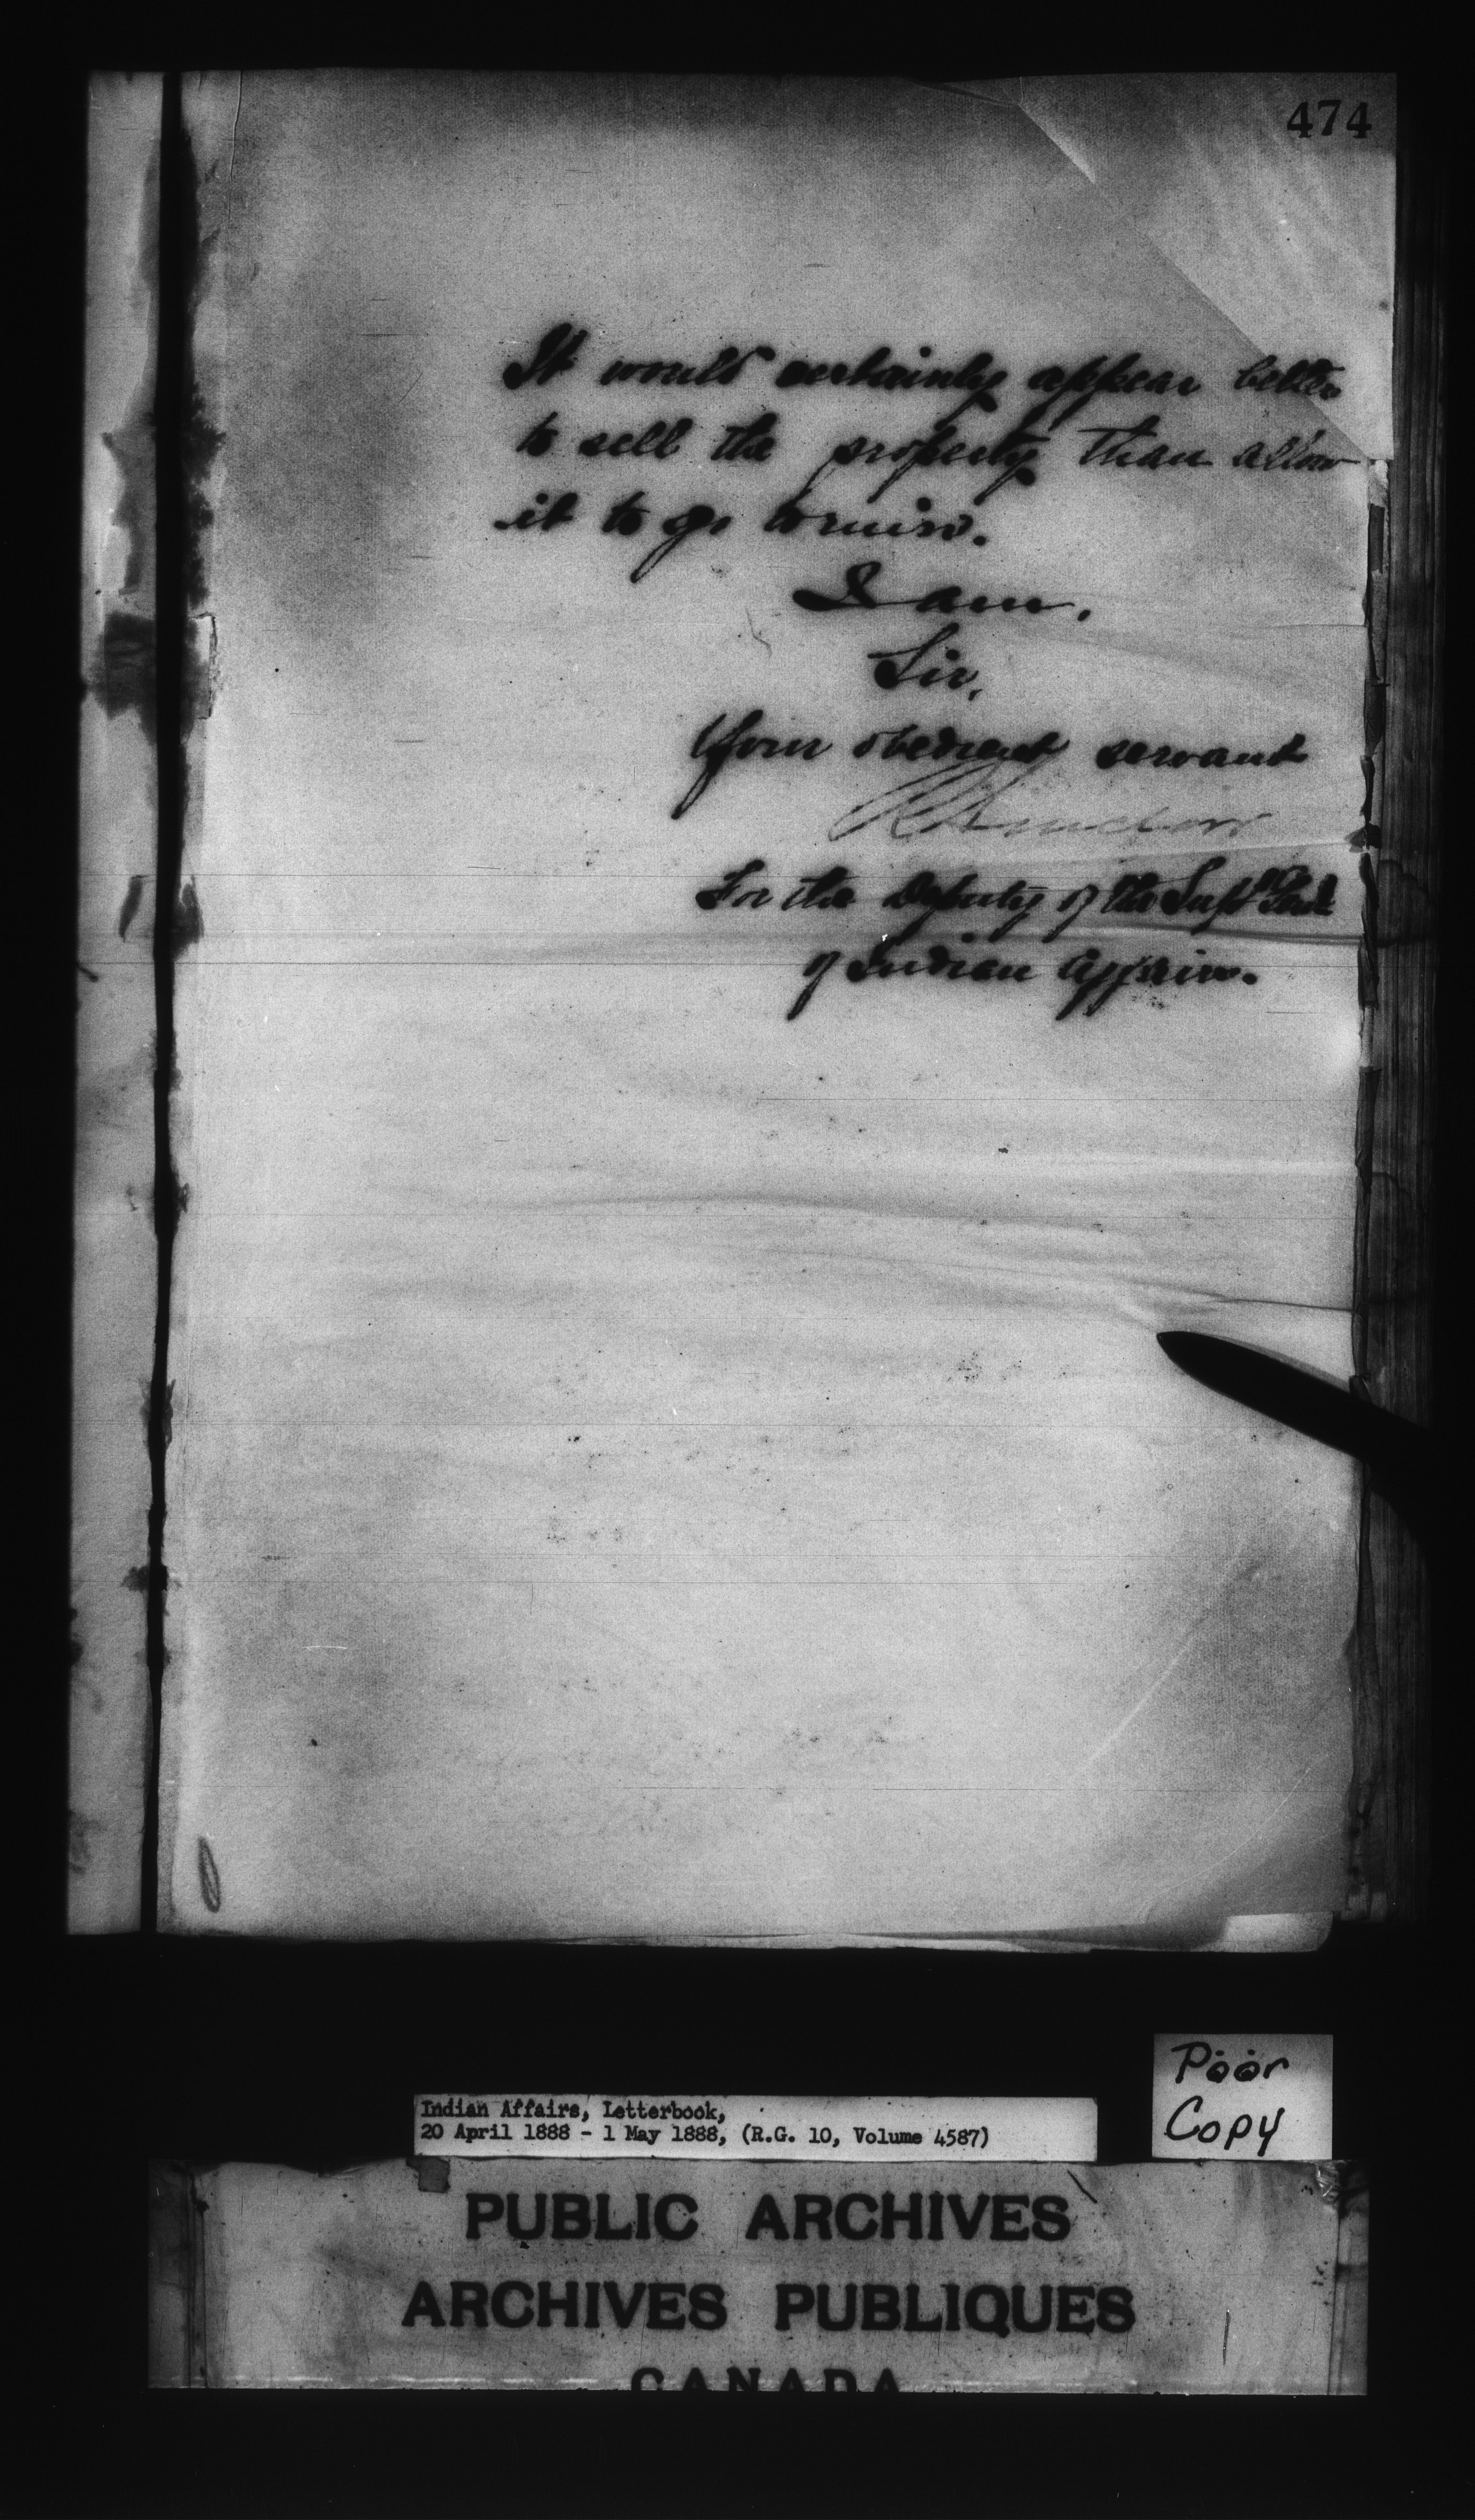 474
It would certainly appear better
to sell the property than allow
it to go to ruin.
I am,
Sir,
Your obedient servant
For the Deputy of the Supt Genl
of Indian Affairs.
Poor
Copy
Indian Affairs, Letterbook,
20 April 1888 - 1 May 1888, (R.G. 10, Volume 4587)
PUBLIC ARCHIVES
ARCHIVES PUBLIQUES
CANADA